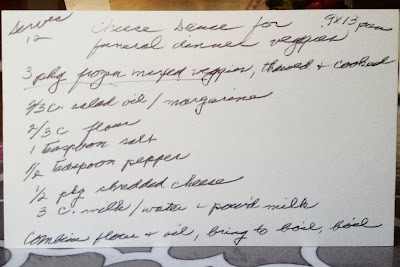 Serves 12
Cheese Sauce for 9x13 pan
funeral dinner veggies
3 pkg frozen mixed veggies, thawed + cooked
2/3 c. salad oil / margarine
2/3 c flour
1 teaspoon salt
1/2 teaspoon pepper
1/2 pkg shredded cheese
3 c. milk/water + powd milk
Combine flour & oil, bring to boil, boil